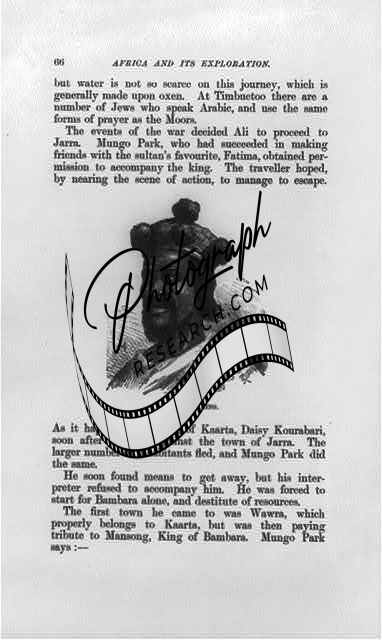 66 AFRICA AND ITS EXPLORATION.
but water is not so scarce on this journey, which is
generally made upon oxen. At Timbuctoo there are a
number of Jews who speak Arabic, and use the same
forms of prayer as the Moors.
The events of the war decided Ali to proceed to
Jarra. Mungo Park, who had succeeded in making
friends with the sultan's favourite, Fatima, obtained per-
mission to accompany the king. The traveller hoped,
by nearing the scene of action, to manage to escape.
Photograph
RESEARCH.COM
As it of Kaarta, Daisy Kourabari,
soon after the town of Jarra. The
larger fled, and Mungo Park did
the same.
He soon found means to get away, but his inter-
preter refused to accompany him. He was forced to
start for Bambara alone, and destitute of resources.
The first town he came to was Wawra, which
properly belongs to Kaarta, but was then paying
tribute to Mansong, King of Bambara. Mungo Park
says :—